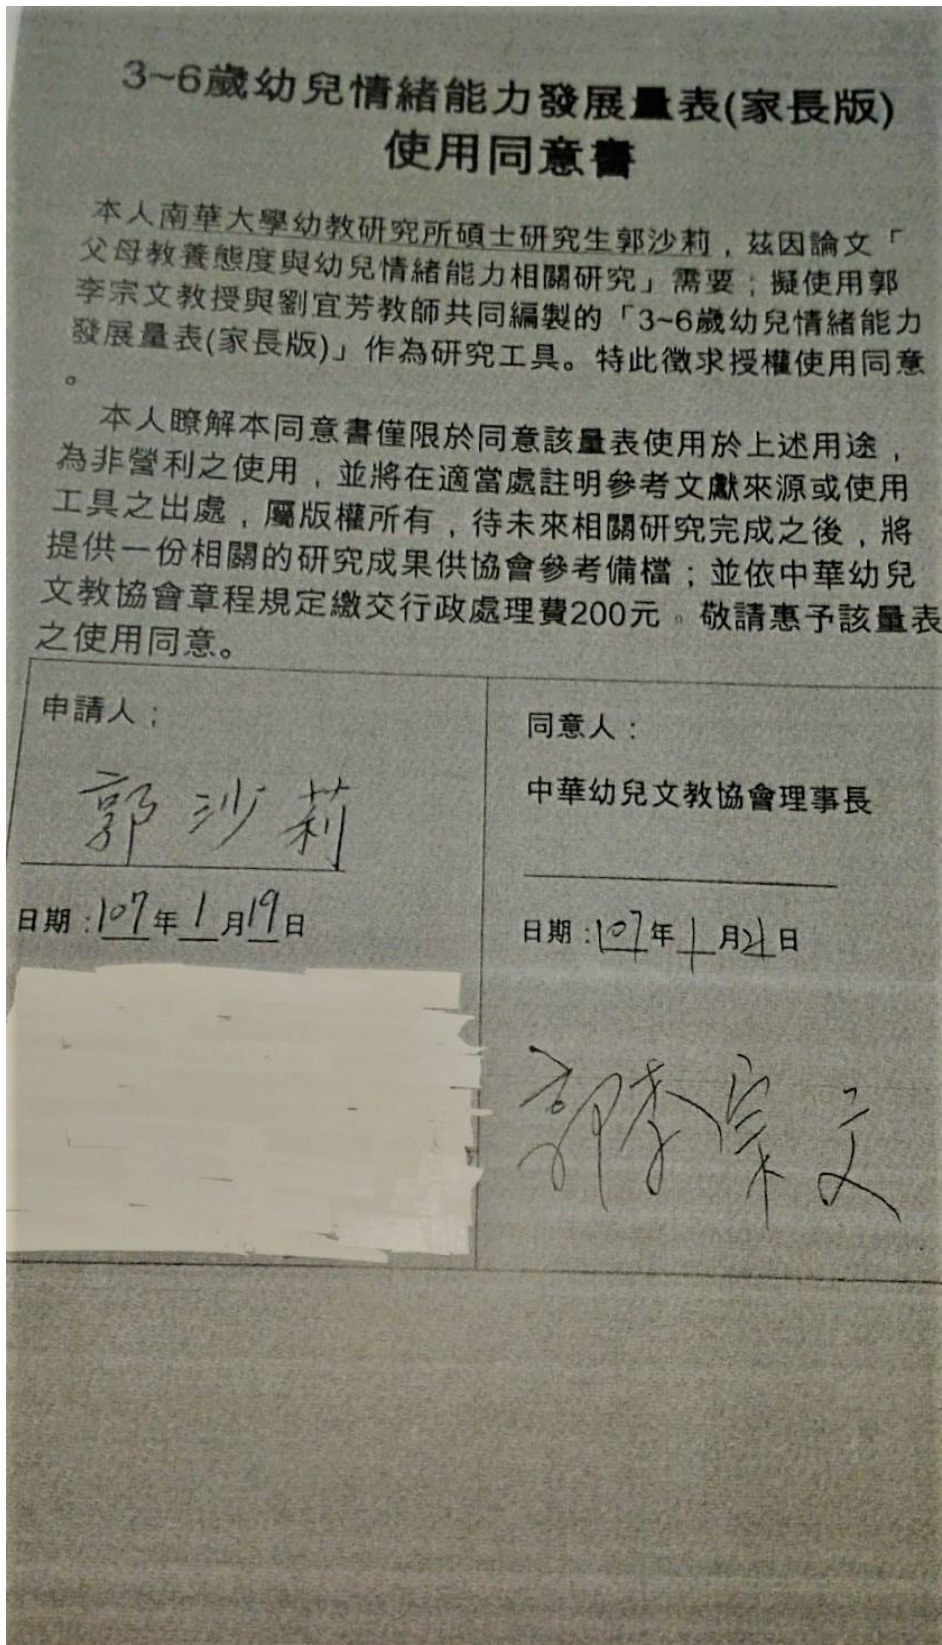 3~6歲幼兒情緒能力發展量表(家長版)
使用同意書
本人南華大學幼教研究所碩士研究生郭沙莉，茲因論文「
父母教養態度與幼兒情緒能力相關研究」需要；擬使用郭
李宗文教授與劉宜芳教師共同編製的「3~6歲幼兒情緒能力
發展量表(家長版)」作為研究工具。特此徵求授權使用同意
。
本人瞭解本同意書僅限於同意該量表使用於上述用途，
為非營利之使用，並將在適當處註明參考文獻來源或使用
工具之出處，屬版權所有，待未來相關研究完成之後，將
提供一份相關的研究成果供協會參考備檔；並依中華幼兒
文教協會章程規定繳交行政處理費200元。敬請惠予該量表
之使用同意。
申請人；
郭沙莉
日期：107年1月19日
同意人：
中華幼兒文教協會理事長
日期：107年1月21日
郭李宗文